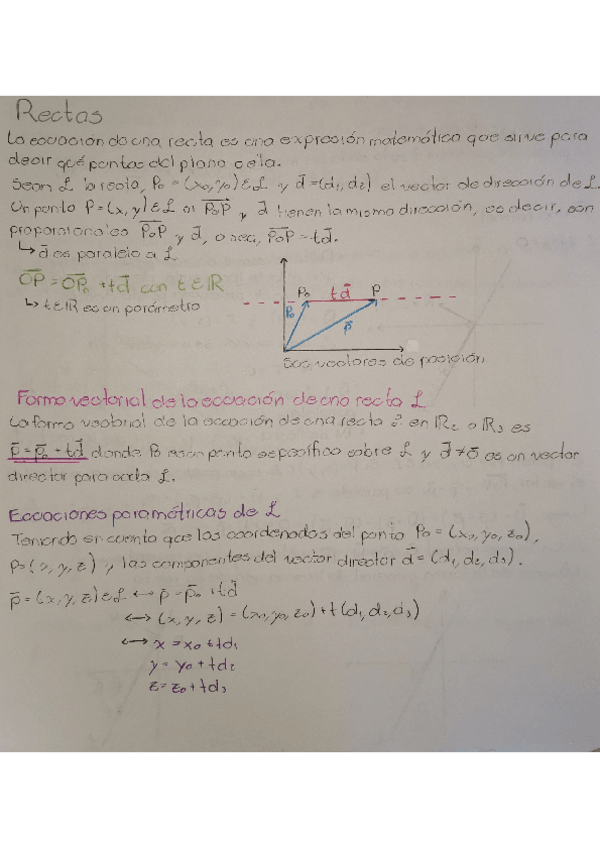 Rectas
La ecuación de una recta es una expresión matemática que sirve para
decir qué puntos del plano o ela.
Sean ℒ la recta, P₀ = (x₀, y₀) ε ℒ y d⃗ = (d₁, d₂) el vector de dirección de ℒ.
Un punto P = (x, y) ε ℒ si P₀P⃗ y d⃗ tienen la misma dirección, es decir, son
proporcionales P₀P⃗ y d⃗, o sea, P₀P⃗ = td⃗.
↳ d⃗ es paralelo a ℒ
OP⃗ = OP₀⃗ + td⃗ con t ε ℝ
↳ t ε ℝ es un parámetro
P₀ td⃗ P
P₀
p⃗
Sus vectores de posición
Forma vectorial de la ecuación de una recta ℒ
La forma vectorial de la ecuación de una recta ℒ en ℝ₂ o ℝ₃ es
p⃗ = p⃗₀ + td⃗ donde P₀ es un punto específico sobre ℒ y d⃗ ≠ 0⃗ es un vector
director para cada ℒ.
Ecuaciones paramétricas de ℒ
Teniendo en cuenta que las coordenadas del punto P₀ = (x₀, y₀, z₀),
P = (x, y, z) y las componentes del vector director d⃗ = (d₁, d₂, d₃).
p⃗ = (x, y, z) ε ℒ ↔ p⃗ = p⃗₀ + td⃗
↔ (x, y, z) = (x₀, y₀, z₀) + t(d₁, d₂, d₃)
↔ x = x₀ + td₁
y = y₀ + td₂
z = z₀ + td₃